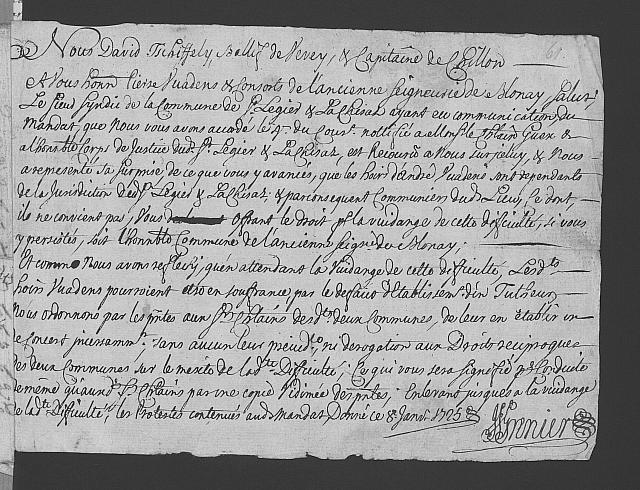 Nous David Tschiffely Ballif de Vevey, & Capitaine de Chillon
A Vous honn. Pierre Vuadens & Consorts de l'ancienne Seigneurie de Blonay Salut,
Le Sieur Syndic de la Commune de St. Legier & La Chiésaz ayant eu communication du
Mandat, que Nous vous avons accordé le 4e. du Cour. notifié à eMons. le Chtlain Guex &
a l'honble Corps de Justice dud. St. Legier & La Chiésaz, est Recouru à Nous sur Icelluy, & Nous
a representé sa surprise de ce que vous y avanciés, que les hoirs d'André Vuadens sont dependants
de la Jurisdiction de d. St. Legier & La Chiésaz; & par consequent Communiers dud. Lieu, Ce dont,
ils ne convienent pas, Vous offrant le droit pr. la vuidange de cette difficulté, si vous
y persistés, soit l'honnble Commune de l'ancienne Seigrie de Blonay;
Et comme Nous avons reflechy, qu'en attendant la Vuidange de cette difficulté, Lesdts.
hoirs Vuadens pourroient etre en souffrance, par le defaut d'Etablissemt. d'un Tutheur,
Nous ordonnons par les pntes aux Srs. Chtlains desdtes deux Communes, de leur en Etablir un
de Concert incessamt., sans aucun leur prejudce. ni derogation aux Droits reciproques
des deux Communes sur le merite de ladte Difficulté; Ce qui vous sera signifié pr. Conduite
de meme qu'auxd. Srs. Chtlains par une copie Vidimée des pntes; Enlevant jusques a la vuidange
de ladte Difficulté, les Protestes contenues aud. Mandat. Donné ce 8e Janvr. 1725